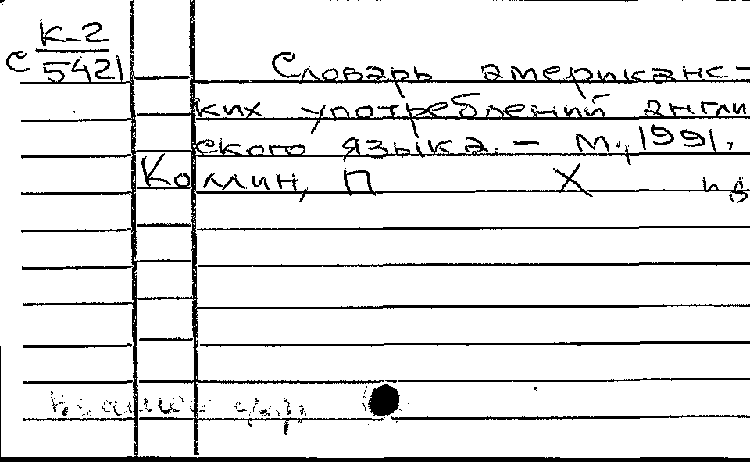 К-2
С 5421
Словарь американс-
ких употреблений англи
ского языка. - М., 1991.
Колин, П Х